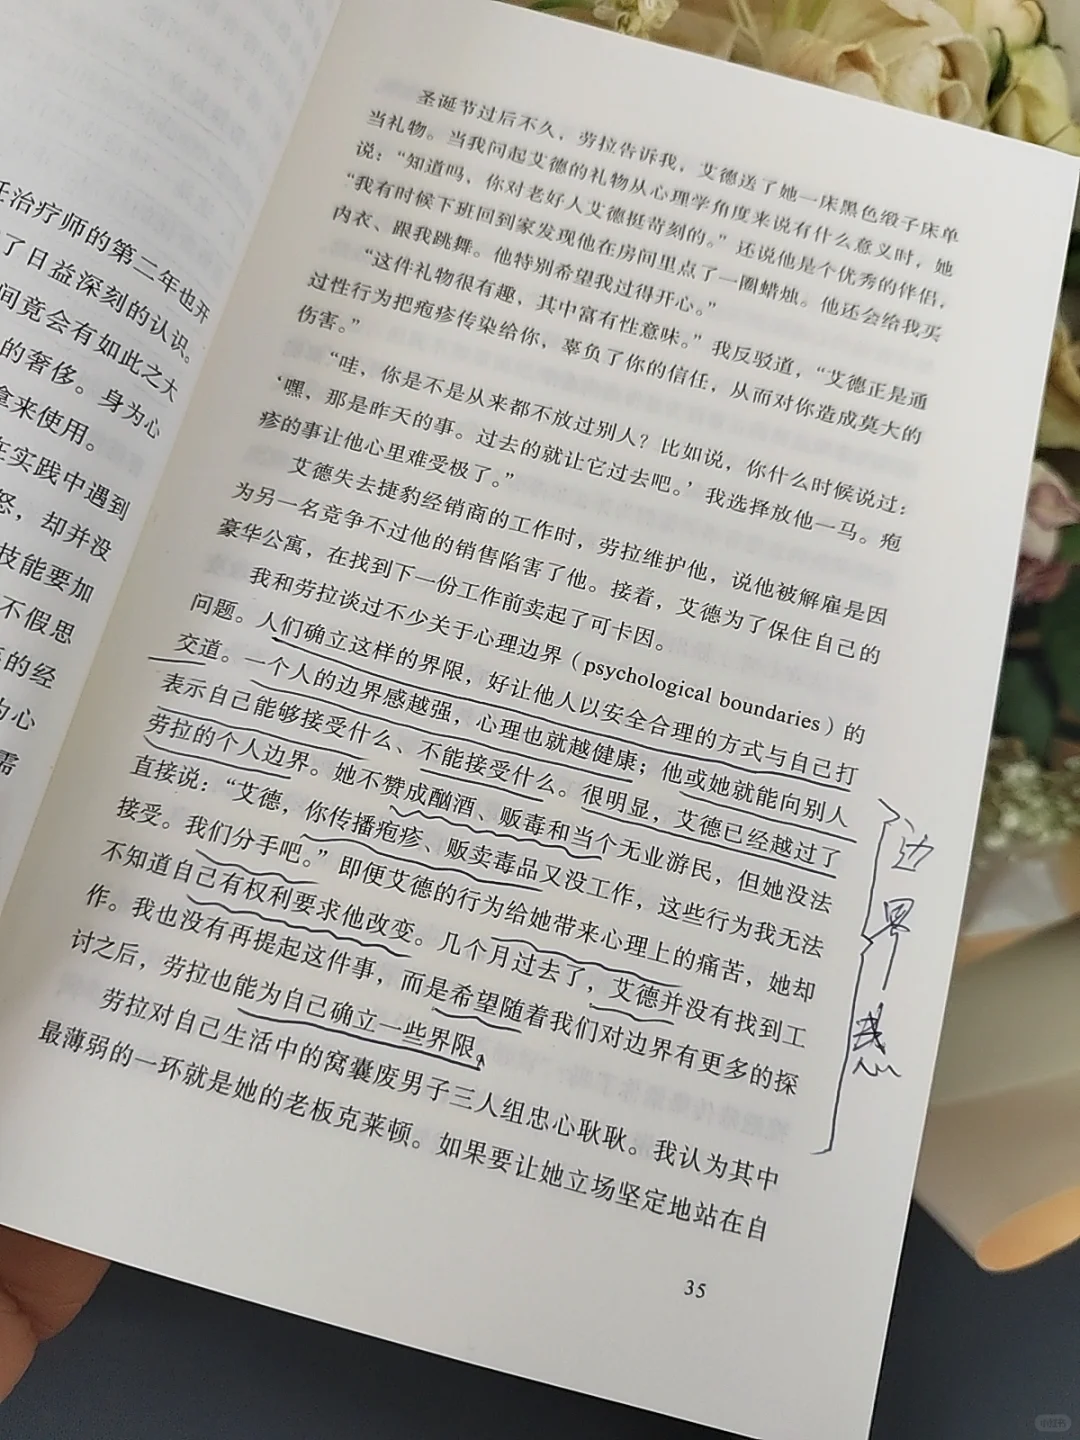 任治疗师的第二年也开
了日益深刻的认识。
间竟会有如此之大
的奢侈。身为心
拿来使用。
在实践中遇到
怒，却并没
技能要加
不假思
的经
为心
需
圣诞节过后不久，劳拉告诉我，艾德送了她一床黑色缎子床单
当礼物。当我问起艾德的礼物从心理学角度来说有什么意义时，她
说：“知道吗，你对老好人艾德挺苛刻的。”还说他是个优秀的伴侣，
“我有时候下班回到家发现他在房间里点了一圈蜡烛。他还会给我买
内衣、跟我跳舞。他特别希望我过得开心。”
“这件礼物很有趣，其中富有性意味。”我反驳道，“艾德正是通
过性行为把疱疹传染给你，辜负了你的信任，从而对你造成莫大的
伤害。”
“哇，你是不是从来都不放过别人？比如说，你什么时候说过：
‘嘿，那是昨天的事。过去的就让它过去吧。’我选择放他一马。疱
疹的事让他心里难受极了。”
艾德失去捷豹经销商的工作时，劳拉维护他，说他被解雇是因
为另一名竞争不过他的销售陷害了他。接着，艾德为了保住自己的
豪华公寓，在找到下一份工作前卖起了可卡因。
我和劳拉谈过不少关于心理边界（psychological boundaries）的
问题。人们确立这样的界限，好让他人以安全合理的方式与自己打
交道。一个人的边界感越强，心理也就越健康；他或她就能向别人
表示自己能够接受什么、不能接受什么。很明显，艾德已经越过了
劳拉的个人边界。她不赞成酗酒、贩毒和当个无业游民，但她没法
直接说：“艾德，你传播疱疹、贩卖毒品又没工作，这些行为我无法
接受。我们分手吧。”即便艾德的行为给她带来心理上的痛苦，她却
不知道自己有权利要求他改变。几个月过去了，艾德并没有找到工
作。我也没有再提起这件事，而是希望随着我们对边界有更多的探
讨之后，劳拉也能为自己确立一些界限。
劳拉对自己生活中的窝囊废男子三人组忠心耿耿。我认为其中
最薄弱的一环就是她的老板克莱顿。如果要让她立场坚定地站在自
边界感
35
小红书